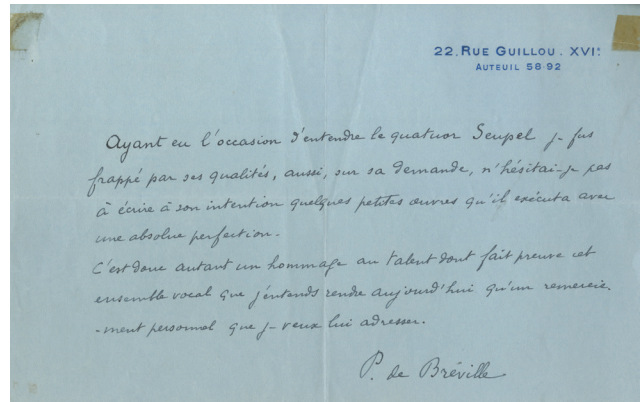 22. RUE GUILLOU. XVIE
AUTEUIL 58-92
Ayant eu l'occasion d'entendre le quatuor Seupel je fus
frappé par ses qualités, aussi, sur sa demande, n'hésitai-je pas
à écrire à son intention quelques petites œuvres qu'il exécuta avec
une absolue perfection.
C'est donc autant un hommage au talent dont fait preuve cet
ensemble vocal que j'entends rendre aujourd'hui qu'un remercie.
-ment personnel que je veux lui adresser.
P. de Bréville